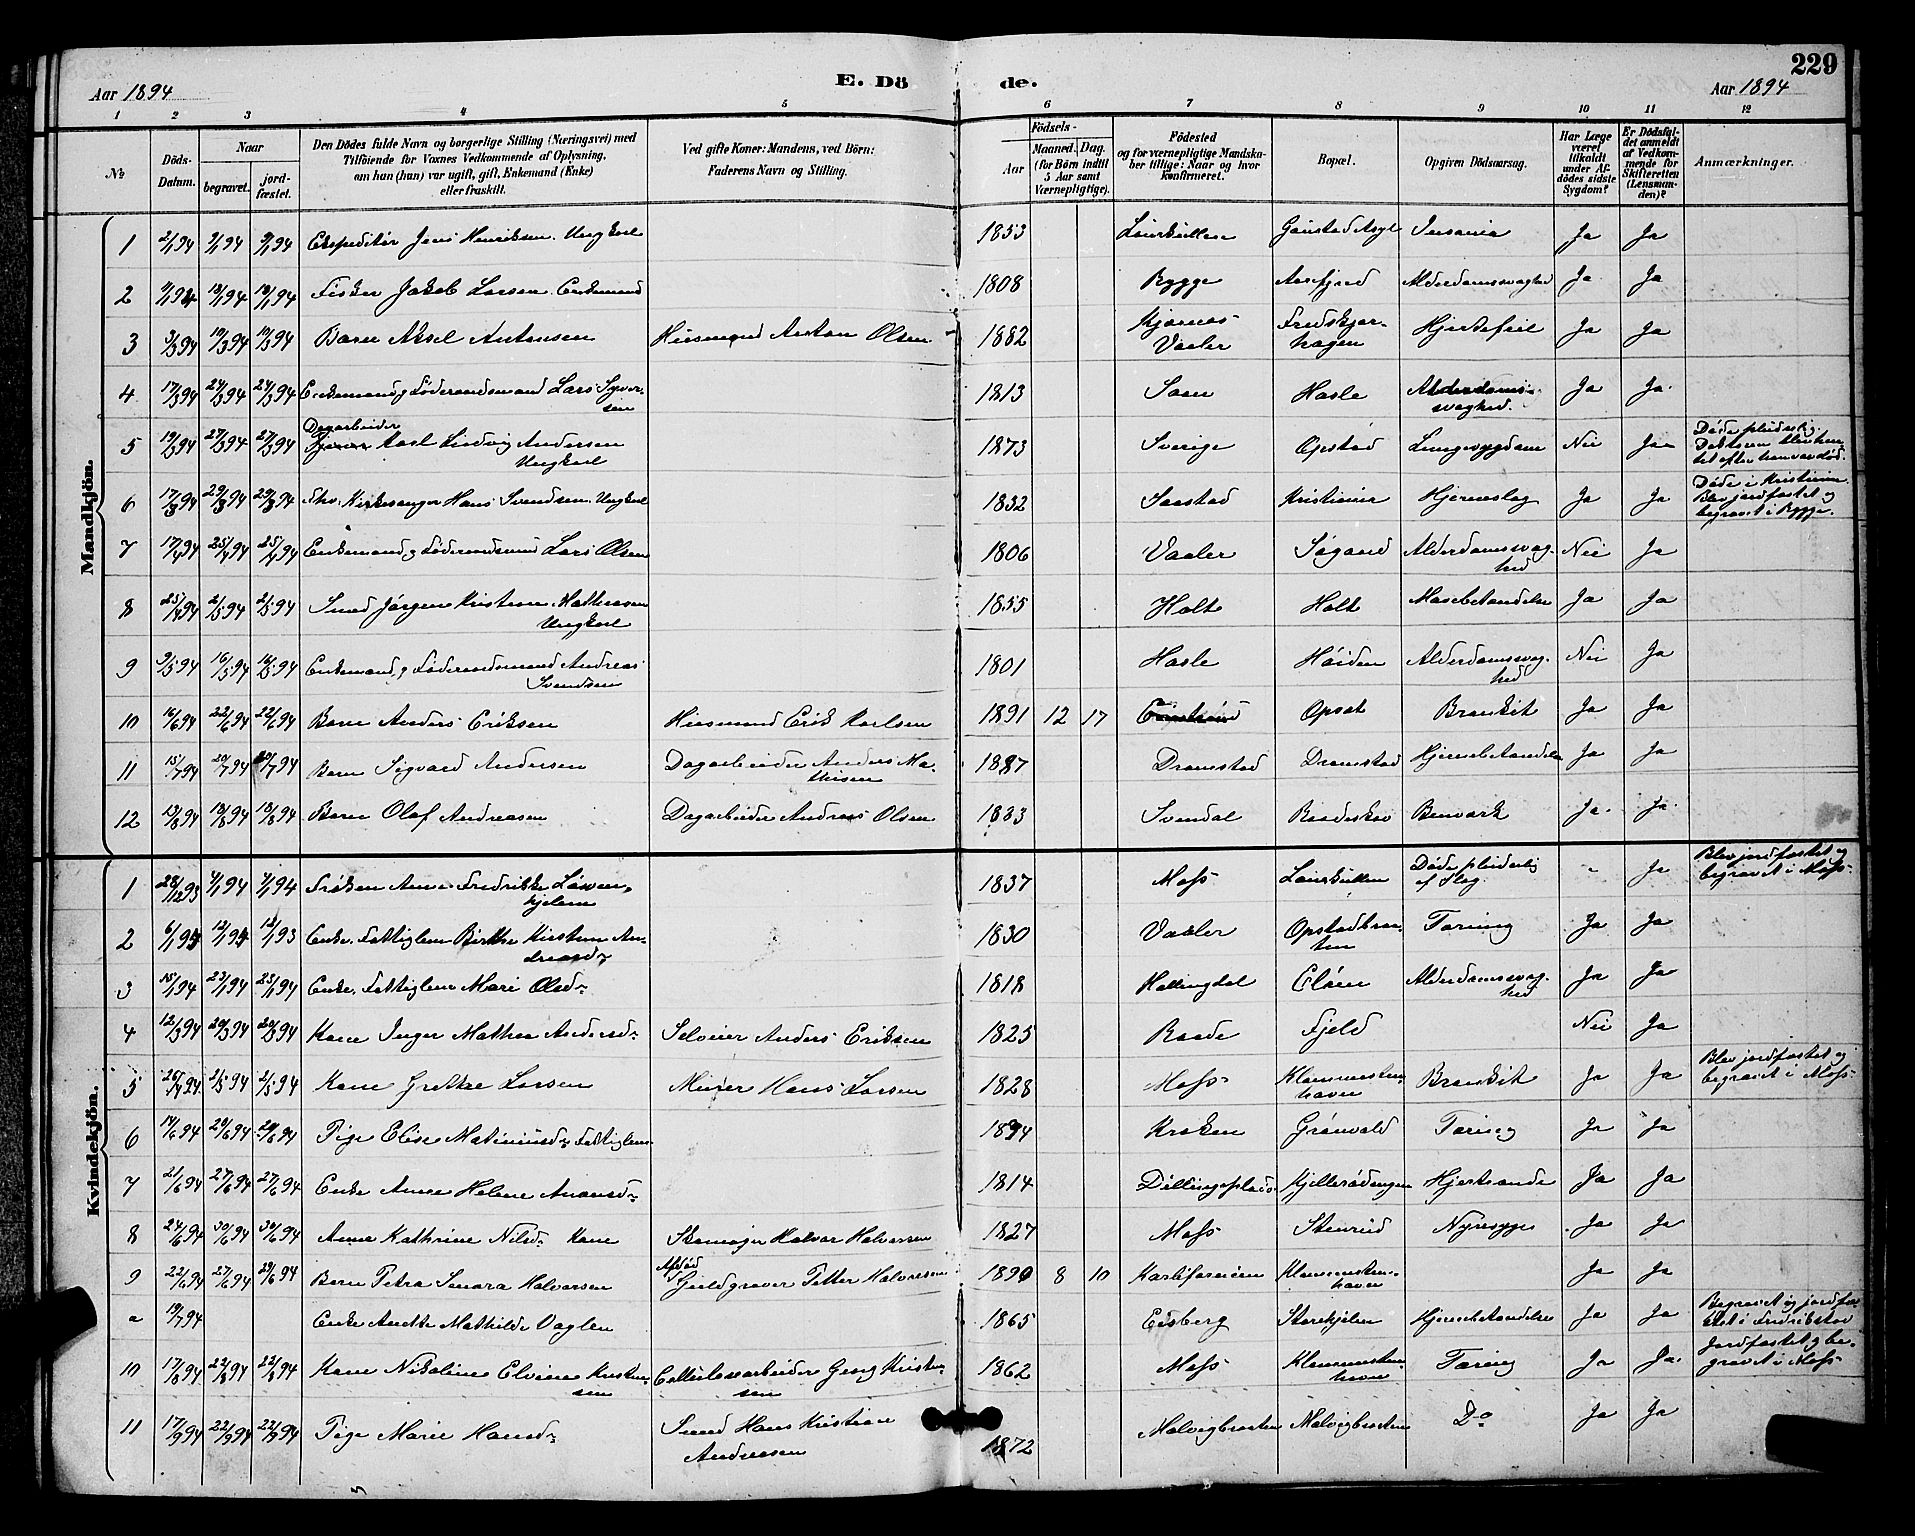 229
Aar 1894
E. Dö
de.
Aar 1894
1 2 3 4 5 6 7 8 9 10 11 12
No
Döds-
Datum.
Naar
begravet.
jord-
fæstet.
Den Dödes fulde Navn og borgerlige Stilling (Næringsvei) med
Tilföiende for Voxnes Vedkommende af Oplysning,
om han (hun) var ugift, gift, Enkemand (Enke)
eller fraskilt.
Ved gifte Koner: Mandens, ved Börn:
Faderens Navn og Stilling.
Födsels-
Aar
Maaned. Dag.
(for Börn indtil
5 Aar samt
Værnepligtige).
Födested
og for værnepligtige Mandska-
ber tillige: Naar og hvor
konfirmeret.
Bopæl.
Opgiven Dödsaarsag.
Har Læge
været
tilkaldt
under Af-
dödes sidste
Sygdom?
Er Dödsfal-
det anmeldt
af Vedkom-
mende for
Skifteretten
(Lensman-
den)?
Anmærkninger.
Mandkjön.
1 2/1 94 9/1 94 9/1 94 Ekspeditør Jens Henriksen. Ungkarl 1853 Laurkullen Gaustad Asyl Insania Ja Ja
2 9/1 94 18/1 94 18/1 94 Fisker Jakob Larsen. Enkemand 1808 Rygge Aarefjord Alderdomssvaghed Ja Ja
3 3/3 94 10/3 94 10/3 94 Barn Aksel Antonsen Husmand Anton Olsen 1882 Kjærnes
Vaaler Fredskjær-
hagen Hjertefeil Ja Ja
4 17/3 94 24/3 94 24/3 94 Enkemand og Føderaadsmand Lars Syver-
sen 1813 Saaner Hasle Alderdoms-
svaghed. Ja Ja
Dagarbeider
5 19/3 94 27/3 94 27/3 94 Karl Ludvig Andersen
Ungkarl 1873 Sverige Opstad Lungesygdom Nei Ja Døde pludselig
Doktoren blev hen-
tet efter han var død.
6 17/3 94 29/3 94 29/3 94 fhv. Kirkesanger Hans Svendsen. Ungkarl 1832 Saastad Kristiania Hjerneslag Ja Ja Døde i Kristiania.
Blev jordfæstet og
begravet i Rygge.
7 17/4 94 25/4 94 25/4 94 Enkemand og Føderaadsmand Lars Olsen 1806 Vaaler Søgaard Alderdomssvag-
hed Nei Ja
8 25/4 94 2/5 94 2/5 94 Smed Jørgen Kristian
Ungkarl 1855 Holt Holt Mavebetændelse Ja Ja
9 9/5 94 16/5 94 16/5 94 Enkemand og Føderaadsmand Andreas
Svendsen 1801 Hasle Høiden Alderdomssvag-
hed Nei Ja
10 16/6 94 22/6 94 22/6 94 Barn Anders Eriksen Husmand Erik Karlsen 1891 12 17 Opsat Bronkit Ja Ja
11 15/7 94 20/7 94 20/7 94 Barn Sigvard Andersen Dagarbeider Anders Ma-
thisen 1887 Dramstad Dramstad Hjernebetændelse Ja Ja
12 13/8 94 18/8 94 18/8 94 Barn Olaf Andreasen Dagarbeider Andreas Olsen 1883 Svendal Raadeskov Benværk Ja Ja
Kvindekjön.
1 28/12 93 4/1 94 4/1 94 Frøken Anne Fredrikke Løven-
kjelm 1837 Moss Laurkullen Døde pludselig
af Slag " Ja Blev jordfæstet og
begravet i Moss
2 6/1 94 12/1 94 12/1 93 Enke. Fattiglem Berthe Kirstine An-
dreasdr 1830 Vaaler Opstadbraa-
ten Tæring Ja Ja
3 15/1 94 23/1 94 23/1 94 Enke. Fattiglem Mari Olsdr 1818 Hallingdal Eløen Alderdomssvag-
hed Ja Ja
4 12/3 94 20/3 94 20/3 94 Kone Inger Mathea Andersdr Selveier Anders Eriksen 1825 Raade Fjeld Nei Ja
5 26/4 94 2/5 94 2/5 94 Kone Grethe Larsen Murer Hans Larsen 1828 Moss Klommesten-
havn Bronkit Ja Ja Blev jordfæstet og
begravet i Moss
6 14/6 94 20/6 94 20/6 94 Pige Elise Matiniusdr Fattiglem 1894 Kroken Grønvald Tæring Ja Ja
7 21/6 94 27/6 94 27/6 94 Enke Anne Helene Amundsdr 1814 Dillingsplads Kjellerødengen Hjertesonde Ja Ja
8 24/6 94 30/6 94 30/6 94 Anne Kathrine Nilsdr Kone Skomager Halvor Halvorsen 1827 Moss Stenrud Nyresyge Ja Ja
9 22/6 94 27/6 94 29/6 94 Barn Petra Senora Halvorsen Afdød
Guldgraver Petter Halvorsen 1890 8 10 Kalifornien Klommesten-
havn Ja Ja
a 19/7 94 Enke Anethe Mathilde Voglen 1865 Eidsberg Storekjelen Hjernebetændelse Ja Ja Begravet og jordfæ-
stet i Fredrikstad
10 17/8 94 22/8 94 22/8 94 Kone Nikoline Elvine Kristian-
sen Cellulosearbeider Georg Kristian-
sen 1862 Moss Klommesten-
havn Tæring Ja Ja Jordfæstet og be-
gravet i Moss
11 17/9 94 22/9 94 22/9 94 Pige Marie Hansdr Smed Hans Kristian
Andreasen 1872 Malvigbraaten Malvigbraaten Do Ja Ja